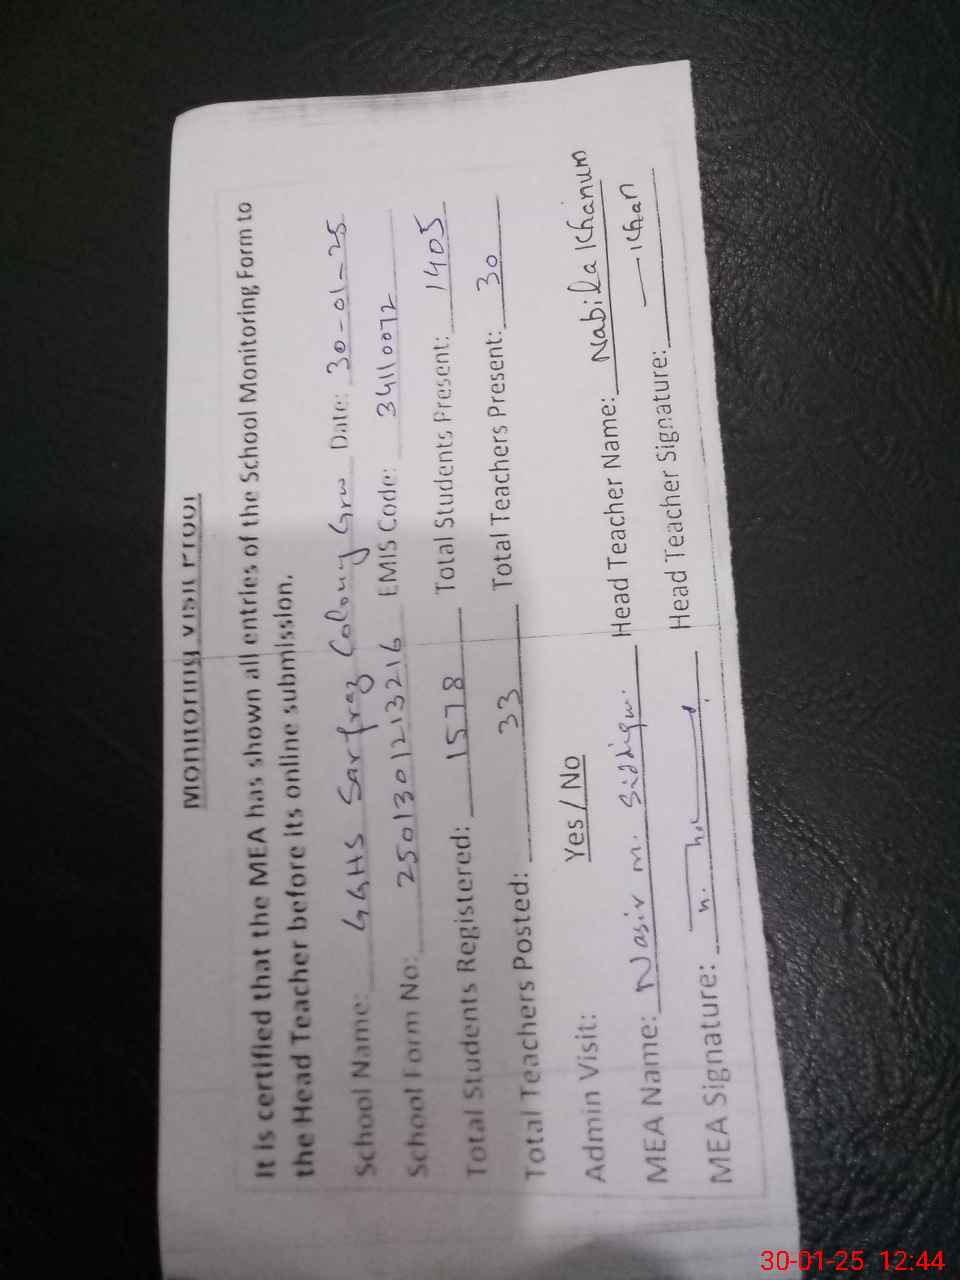 Monitoring Visit Proof
It is certified that the MEA has shown all entries of the School Monitoring Form to
the Head Teacher before its online submission.
School Name: GGHS Sarfraz Colony Grw Date: 30-01-25
School Form No: 2501301213216 EMIS Code: 34110072
Total Students Registered: 1578 Total Students Present: 1405
Total Teachers Posted: 33 Total Teachers Present: 30
Admin Visit: Yes / No
MEA Name: Nasir M. Siddiqui Head Teacher Name: Nabila Khanum
MEA Signature: Head Teacher Signature: Khan
30-01-25 12:44